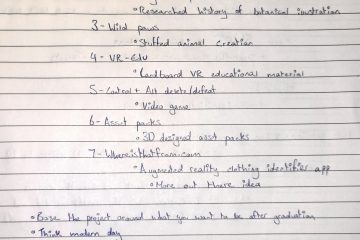 •Researched history of botanical inustration
3 - Wild paws
•Stuffed animal creation
4 - VR-Edu
•Cardboard VR educational material
5 - Control + Alt delete/defeat
•Video game
6 - Asset packs
•3D designed asset packs
7 - Whereisthatfrom.com
•Augmented reality clothing identifier app
•More out there idea
•Base the project around what you want to be after graduation
•Think modern day